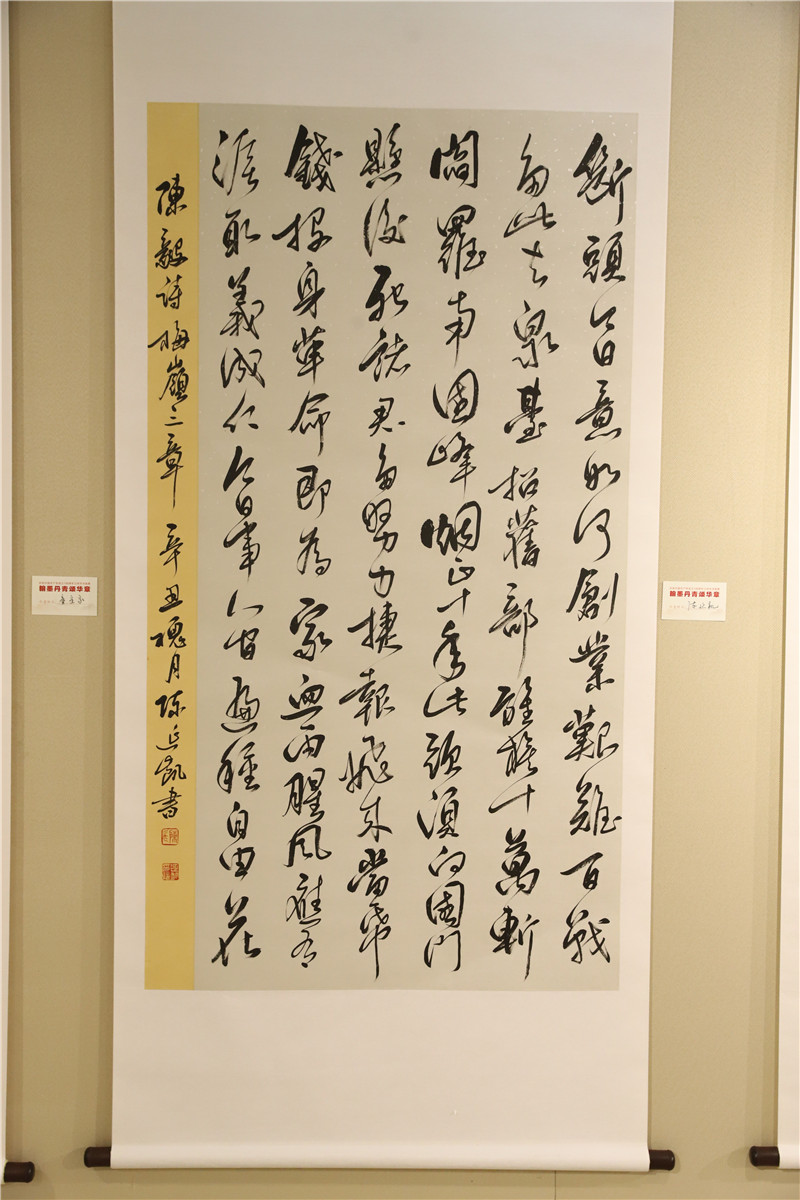 斷頭今日意如何創業艱難百戰
多此去泉臺招舊部旌旗十萬斬
閻羅南國峰烟正十年此頭須向國門
懸後死諸君多努力捷報飛來當紙
錢投身革命即為家血雨腥風應有
涯取義成仁今日事人間遍種自由花
陳毅詩梅嶺三章 辛丑槐月陈延凱書
翰墨丹青颂华章
翰墨丹青颂华章